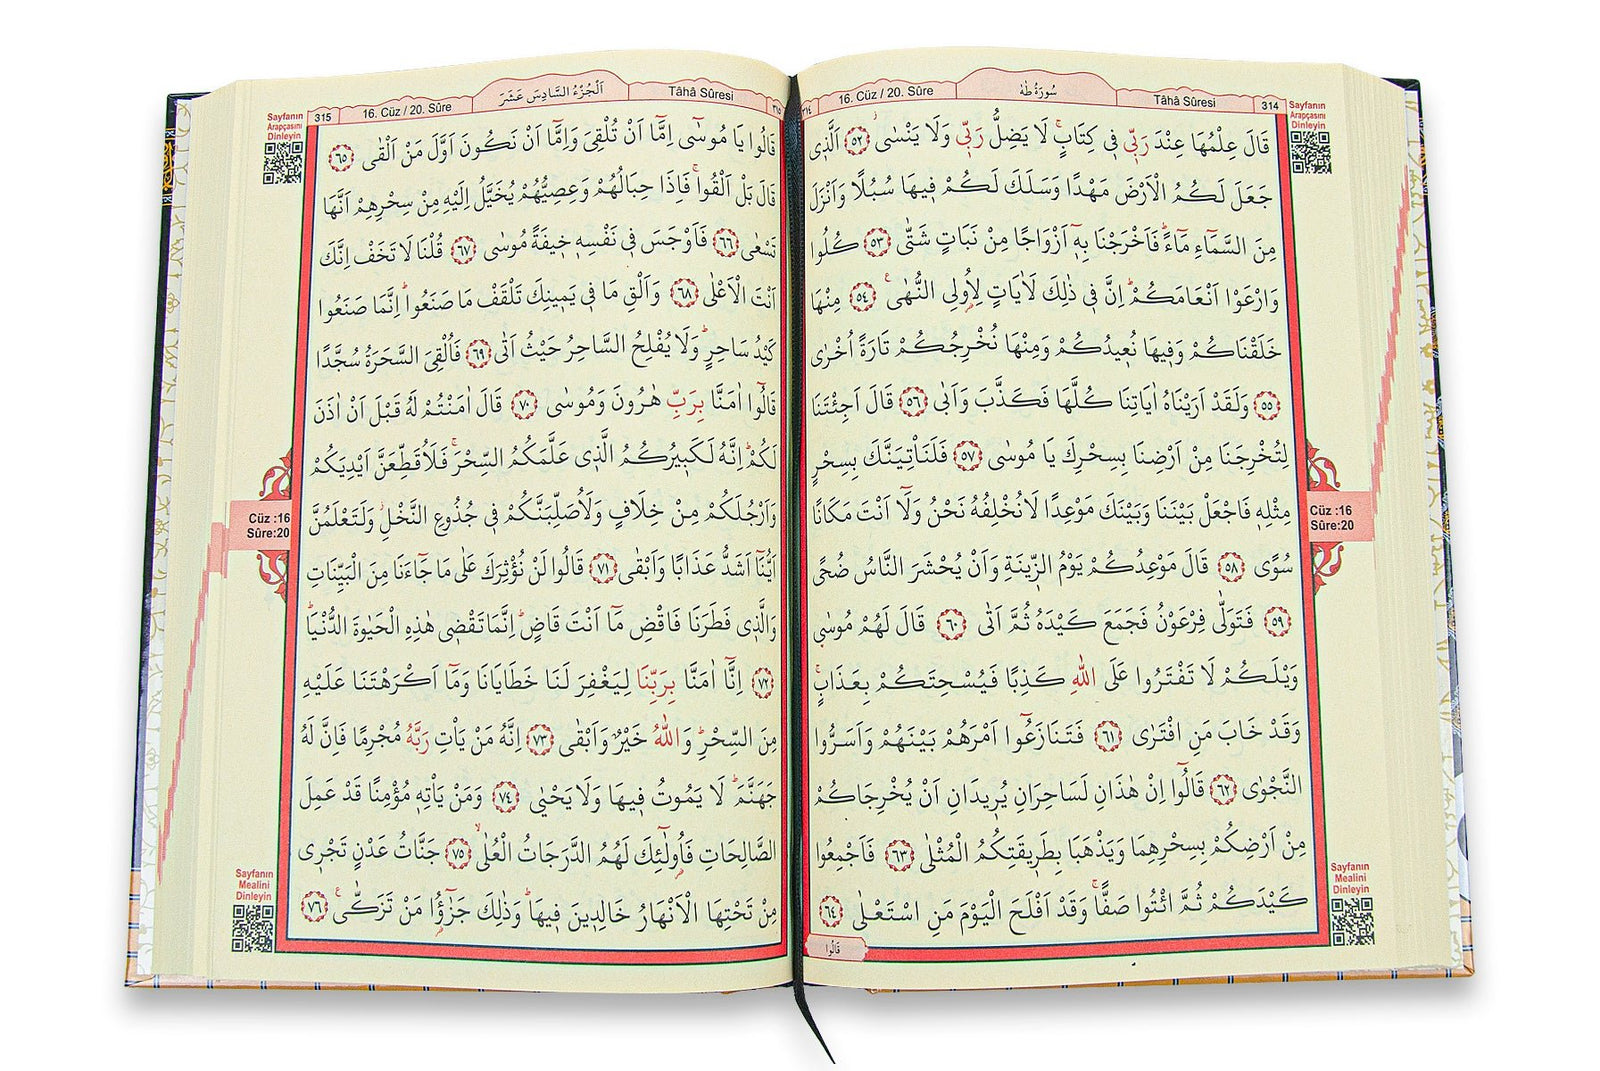 Sayfanın
Arapçasını
Dinleyin
314
Tâhâ Sûresi
سُورَةُ طٰهٰ
16. Cüz / 20. Sûre
٣١٤
قَالَ عِلْمُهَا عِنْدَ رَبّ۪ي ف۪ي كِتَابٍۚ لَا يَضِلُّ رَبّ۪ي وَلَا يَنْسٰىۘ ﴿٥٢﴾ اَلَّذ۪ي
جَعَلَ لَكُمُ الْاَرْضَ مَهْدًا وَسَلَكَ لَكُمْ ف۪يهَا سُبُلًا وَاَنْزَلَ
مِنَ السَّمَٓاءِ مَٓاءًۜ فَاَخْرَجْنَا بِه۪ٓ اَزْوَاجًا مِنْ نَبَاتٍ شَتّٰى ﴿٥٣﴾ كُلُوا
وَارْعَوْا اَنْعَامَكُمْۜ اِنَّ ف۪ي ذٰلِكَ لَاٰيَاتٍ لِاُو۬لِي النُّهٰى۟ ﴿٥٤﴾ مِنْهَا
خَلَقْنَاكُمْ وَف۪يهَا نُع۪يدُكُمْ وَمِنْهَا نُخْرِجُكُمْ تَارَةً اُخْرٰى
﴿٥٥﴾ وَلَقَدْ اَرَيْنَاهُ اٰيَاتِنَا كُلَّهَا فَكَذَّبَ وَاَبٰى ﴿٥٦﴾ قَالَ اَجِئْتَنَا
لِتُخْرِجَنَا مِنْ اَرْضِنَا بِسِحْرِكَ يَا مُوسٰى ﴿٥٧﴾ فَلَنَأْتِيَنَّكَ بِسِحْرٍ
مِثْلِه۪ فَاجْعَلْ بَيْنَنَا وَبَيْنَكَ مَوْعِدًا لَا نُخْلِفُهُ نَحْنُ وَلَٓا اَنْتَ مَكَانًا
سُوًى ﴿٥٨﴾ قَالَ مَوْعِدُكُمْ يَوْمُ الزّ۪ينَةِ وَاَنْ يُحْشَرَ النَّاسُ ضُحًى
﴿٥٩﴾ فَتَوَلّٰى فِرْعَوْنُ فَجَمَعَ كَيْدَهُ ثُمَّ اَتٰى ﴿٦٠﴾ قَالَ لَهُمْ مُوسٰى
وَيْلَكُمْ لَا تَفْتَرُوا عَلَى اللّٰهِ كَذِبًا فَيُسْحِتَكُمْ بِعَذَابٍۚ
وَقَدْ خَابَ مَنِ افْتَرٰى ﴿٦١﴾ فَتَنَازَعُٓوا اَمْرَهُمْ بَيْنَهُمْ وَاَسَرُّوا
النَّجْوٰى ﴿٦٢﴾ قَالُٓوا اِنْ هٰذَانِ لَسَاحِرَانِ يُر۪يدَانِ اَنْ يُخْرِجَاكُمْ
مِنْ اَرْضِكُمْ بِسِحْرِهِمَا وَيَذْهَبَا بِطَر۪يقَتِكُمُ الْمُثْلٰى ﴿٦٣﴾ فَاَجْمِعُوا
كَيْدَكُمْ ثُمَّ ائْتُوا صَفًّاۚ وَقَدْ اَفْلَحَ الْيَوْمَ مَنِ اسْتَعْلٰى ﴿٦٤﴾
قَالُوا
Cüz :16
Sûre:20
Sayfanın
Mealini
Dinleyin
٣١٥
Tâhâ Sûresi
اَلْجُزْءُ السَّادِسَ عَشَرَ
16. Cüz / 20. Sûre
315
Sayfanın
Arapçasını
Dinleyin
قَالُوا يَا مُوسٰٓى اِمَّٓا اَنْ تُلْقِيَ وَاِمَّٓا اَنْ نَكُونَ اَوَّلَ مَنْ اَلْقٰى ﴿٦٥﴾
قَالَ بَلْ اَلْقُواۚ فَاِذَا حِبَالُهُمْ وَعِصِيُّهُمْ يُخَيَّلُ اِلَيْهِ مِنْ سِحْرِهِمْ اَنَّهَا
تَسْعٰى ﴿٦٦﴾ فَاَوْجَسَ ف۪ي نَفْسِه۪ خ۪يفَةً مُوسٰى ﴿٦٧﴾ قُلْنَا لَا تَخَفْ اِنَّكَ
اَنْتَ الْاَعْلٰى ﴿٦٨﴾ وَاَلْقِ مَا ف۪ي يَم۪ينِكَ تَلْقَفْ مَا صَنَعُواۜ اِنَّمَا صَنَعُوا
كَيْدُ سَاحِرٍۜ وَلَا يُفْلِحُ السَّاحِرُ حَيْثُ اَتٰى ﴿٦٩﴾ فَاُلْقِيَ السَّحَرَةُ سُجَّدًا
قَالُٓوا اٰمَنَّا بِرَبِّ هٰرُونَ وَمُوسٰى ﴿٧٠﴾ قَالَ اٰمَنْتُمْ لَهُ قَبْلَ اَنْ اٰذَنَ
لَكُمْۜ اِنَّهُ لَكَب۪يرُكُمُ الَّذ۪ي عَلَّمَكُمُ السِّحْرَۚ فَلَاُقَطِّعَنَّ اَيْدِيَكُمْ
وَاَرْجُلَكُمْ مِنْ خِلَافٍ وَلَاُصَلِّبَنَّكُمْ ف۪ي جُذُوعِ النَّخْلِۘ وَلَتَعْلَمُنَّ
اَيُّنَٓا اَشَدُّ عَذَابًا وَاَبْقٰى ﴿٧١﴾ قَالُوا لَنْ نُؤْثِرَكَ عَلٰى مَا جَٓاءَنَا مِنَ الْبَيِّنَاتِ
وَالَّذ۪ي فَطَرَنَا فَاقْضِ مَٓا اَنْتَ قَاضٍۜ اِنَّمَا تَقْض۪ي هٰذِهِ الْحَيٰوةَ الدُّنْيَاۜ
﴿٧٢﴾ اِنَّٓا اٰمَنَّا بِرَبِّنَا لِيَغْفِرَ لَنَا خَطَايَانَا وَمَٓا اَكْرَهْتَنَا عَلَيْهِ
مِنَ السِّحْرِۜ وَاللّٰهُ خَيْرٌ وَاَبْقٰى ﴿٧٣﴾ اِنَّهُ مَنْ يَأْتِ رَبَّهُ مُجْرِمًا فَاِنَّ لَهُ
جَهَنَّمَۜ لَا يَمُوتُ ف۪يهَا وَلَا يَحْيٰى ﴿٧٤﴾ وَمَنْ يَأْتِه۪ مُؤْمِنًا قَدْ عَمِلَ
الصَّالِحَاتِ فَاُو۬لٰٓئِكَ لَهُمُ الدَّرَجَاتُ الْعُلٰىۙ ﴿٧٥﴾ جَنَّاتُ عَدْنٍ تَجْر۪ي
مِنْ تَحْتِهَا الْاَنْهَارُ خَالِد۪ينَ ف۪يهَاۜ وَذٰلِكَ جَزٰٓؤُ۬ا مَنْ تَزَكّٰى۟ ﴿٧٦﴾
Cüz :16
Sûre:20
Sayfanın
Mealini
Dinleyin